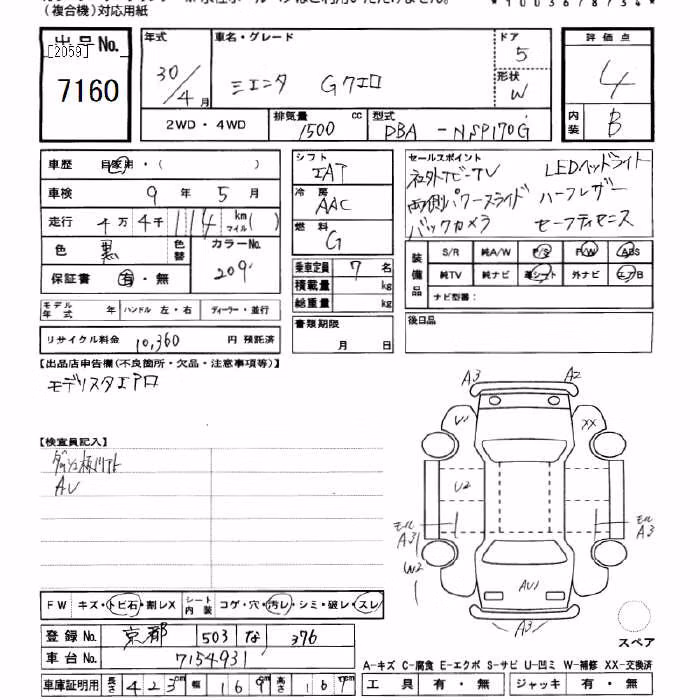 (複合機)対応用紙
出品No. [2059] 7160
年式 30/4月
車名・グレード シエンタ Gクエロ
ドア 5
形状 W
評価点 4
内装 B
2WD・4WD
排気量 1500 cc
型式 DBA-NSP170G
車歴 自家用・( )
車検 9年5月
走行 4万4千114km マイル( )
色 黒 色替 カラーNo. 209
保証書 有・無
モデル年式 年 ハンドル 左・右 ディーラー・並行
リサイクル料金 10,360 円 預託済
シフト IAT
冷房 AAC
燃料 G
乗車定員 7名
積載量 kg
総重量 kg
書類期限 月 日
セールスポイント
社外ナビ-TV LEDヘッドライト
両側パワースライド ハーフレザー
バックカメラ セーフティセンス
装備品
S/R 純A/W P/S P/W ABS
純TV 純ナビ 革シート 外ナビ エアB
ナビ型番:
後日品
【出品店申告欄(不良箇所・欠品・注意事項等)】
モデリスタエアロ
【検査員記入】
AU
FW キズ・トビ石・割レX シート内装 コゲ・穴・汚レ・シミ・破レ・スレ
登録No. 京都 503 な 376
車台No. 7154931
車庫証明用 長さ 423cm 幅 169cm 高さ 167cm
A3 A2
V1 XX
U2
モール A3 モール A3
W2
AU1
A3
スペア
A-キズ C-腐食 E-エクボ S-サビ U-凹ミ W-補修 XX-交換済
工具 有・無 ジャッキ 有・無